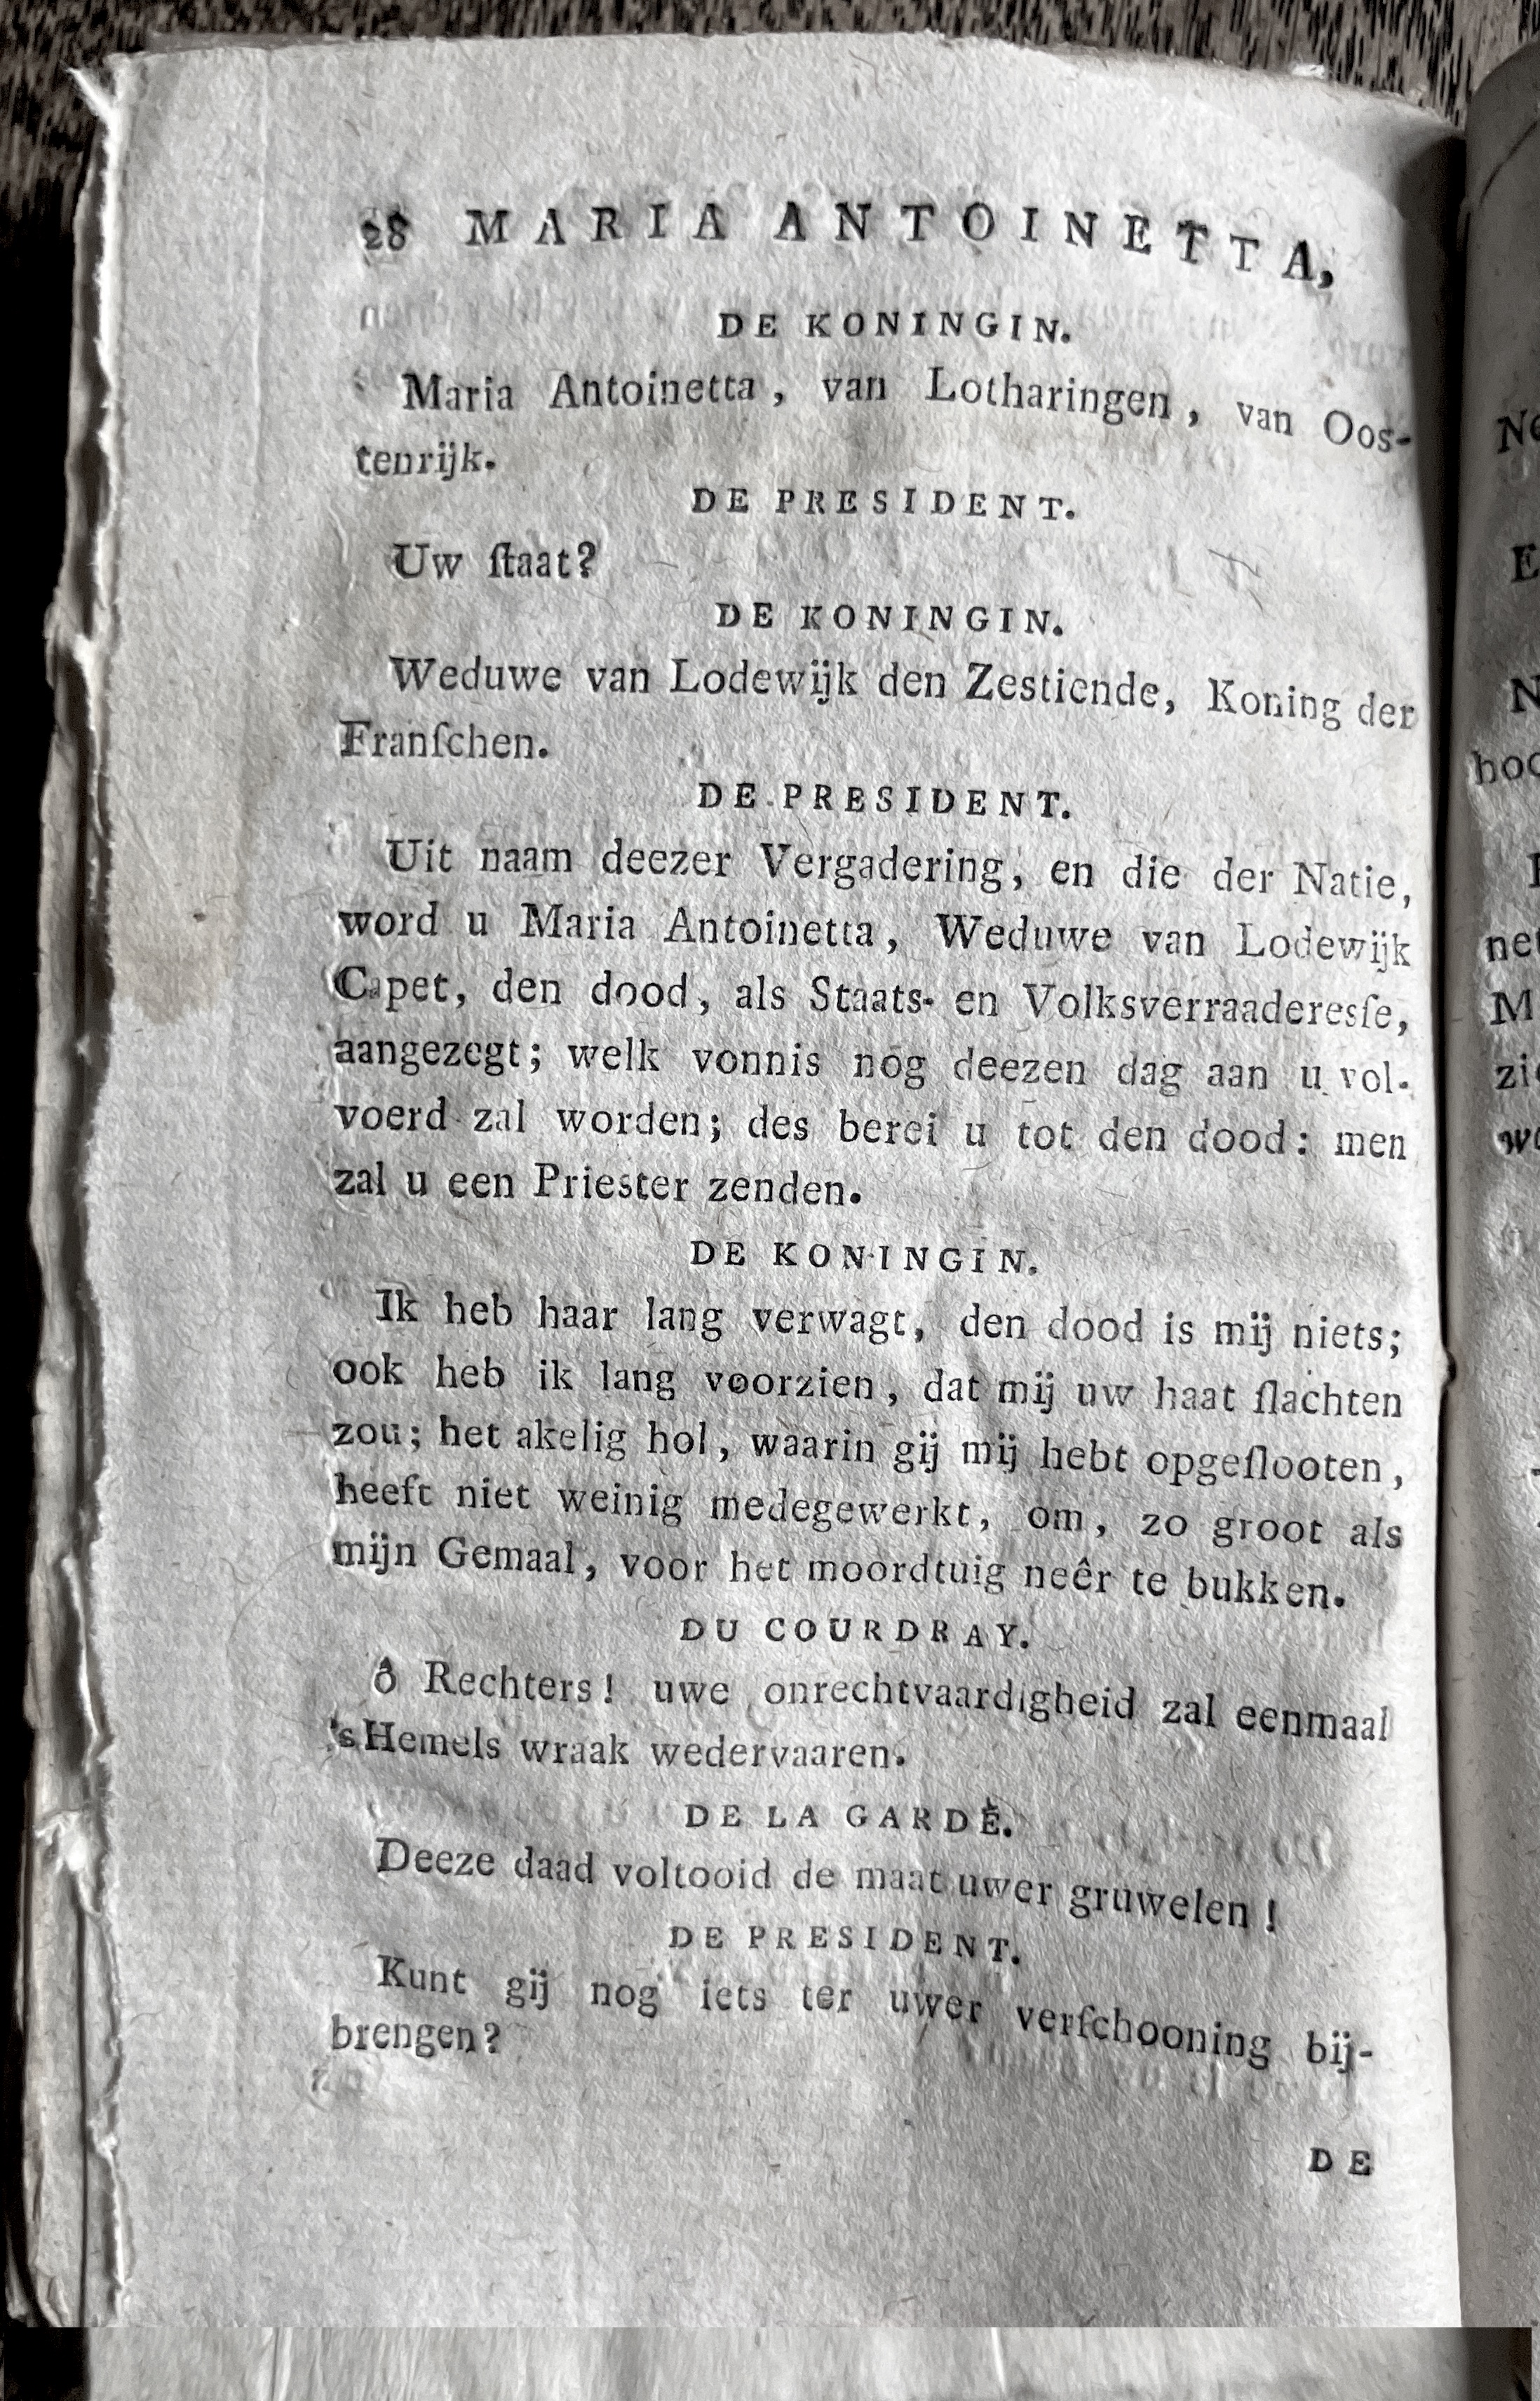 28 MARIA ANTOINETTA,
DE KONINGIN.
Maria Antoinetta, van Lotharingen, van Oos-
tenrijk.
DE PRESIDENT.
Uw ſtaat?
DE KONINGIN.
Weduwe van Lodewijk den Zestiende, Koning der
Franſchen.
DE PRESIDENT.
Uit naam deezer Vergadering, en die der Natie,
word u Maria Antoinetta, Weduwe van Lodewijk
Capet, den dood, als Staats- en Volksverraaderesſe,
aangezegt; welk vonnis nog deezen dag aan u vol-
voerd zal worden; des berei u tot den dood: men
zal u een Priester zenden.
DE KONINGIN.
Ik heb haar lang verwagt, den dood is mij niets;
ook heb ik lang voorzien, dat mij uw haat ſlachten
zou; het akelig hol, waarin gij mij hebt opgeſlooten,
heeft niet weinig medegewerkt, om, zo groot als
mijn Gemaal, voor het moordtuig neêr te bukken.
DU COURDRAY.
ô Rechters! uwe onrechtvaardigheid zal eenmaal
's Hemels wraak wedervaaren.
DE LA GARDÈ.
Deeze daad voltooid de maat uwer gruwelen!
DE PRESIDENT.
Kunt gij nog iets ter uwer verſchooning bij-
brengen?
DE